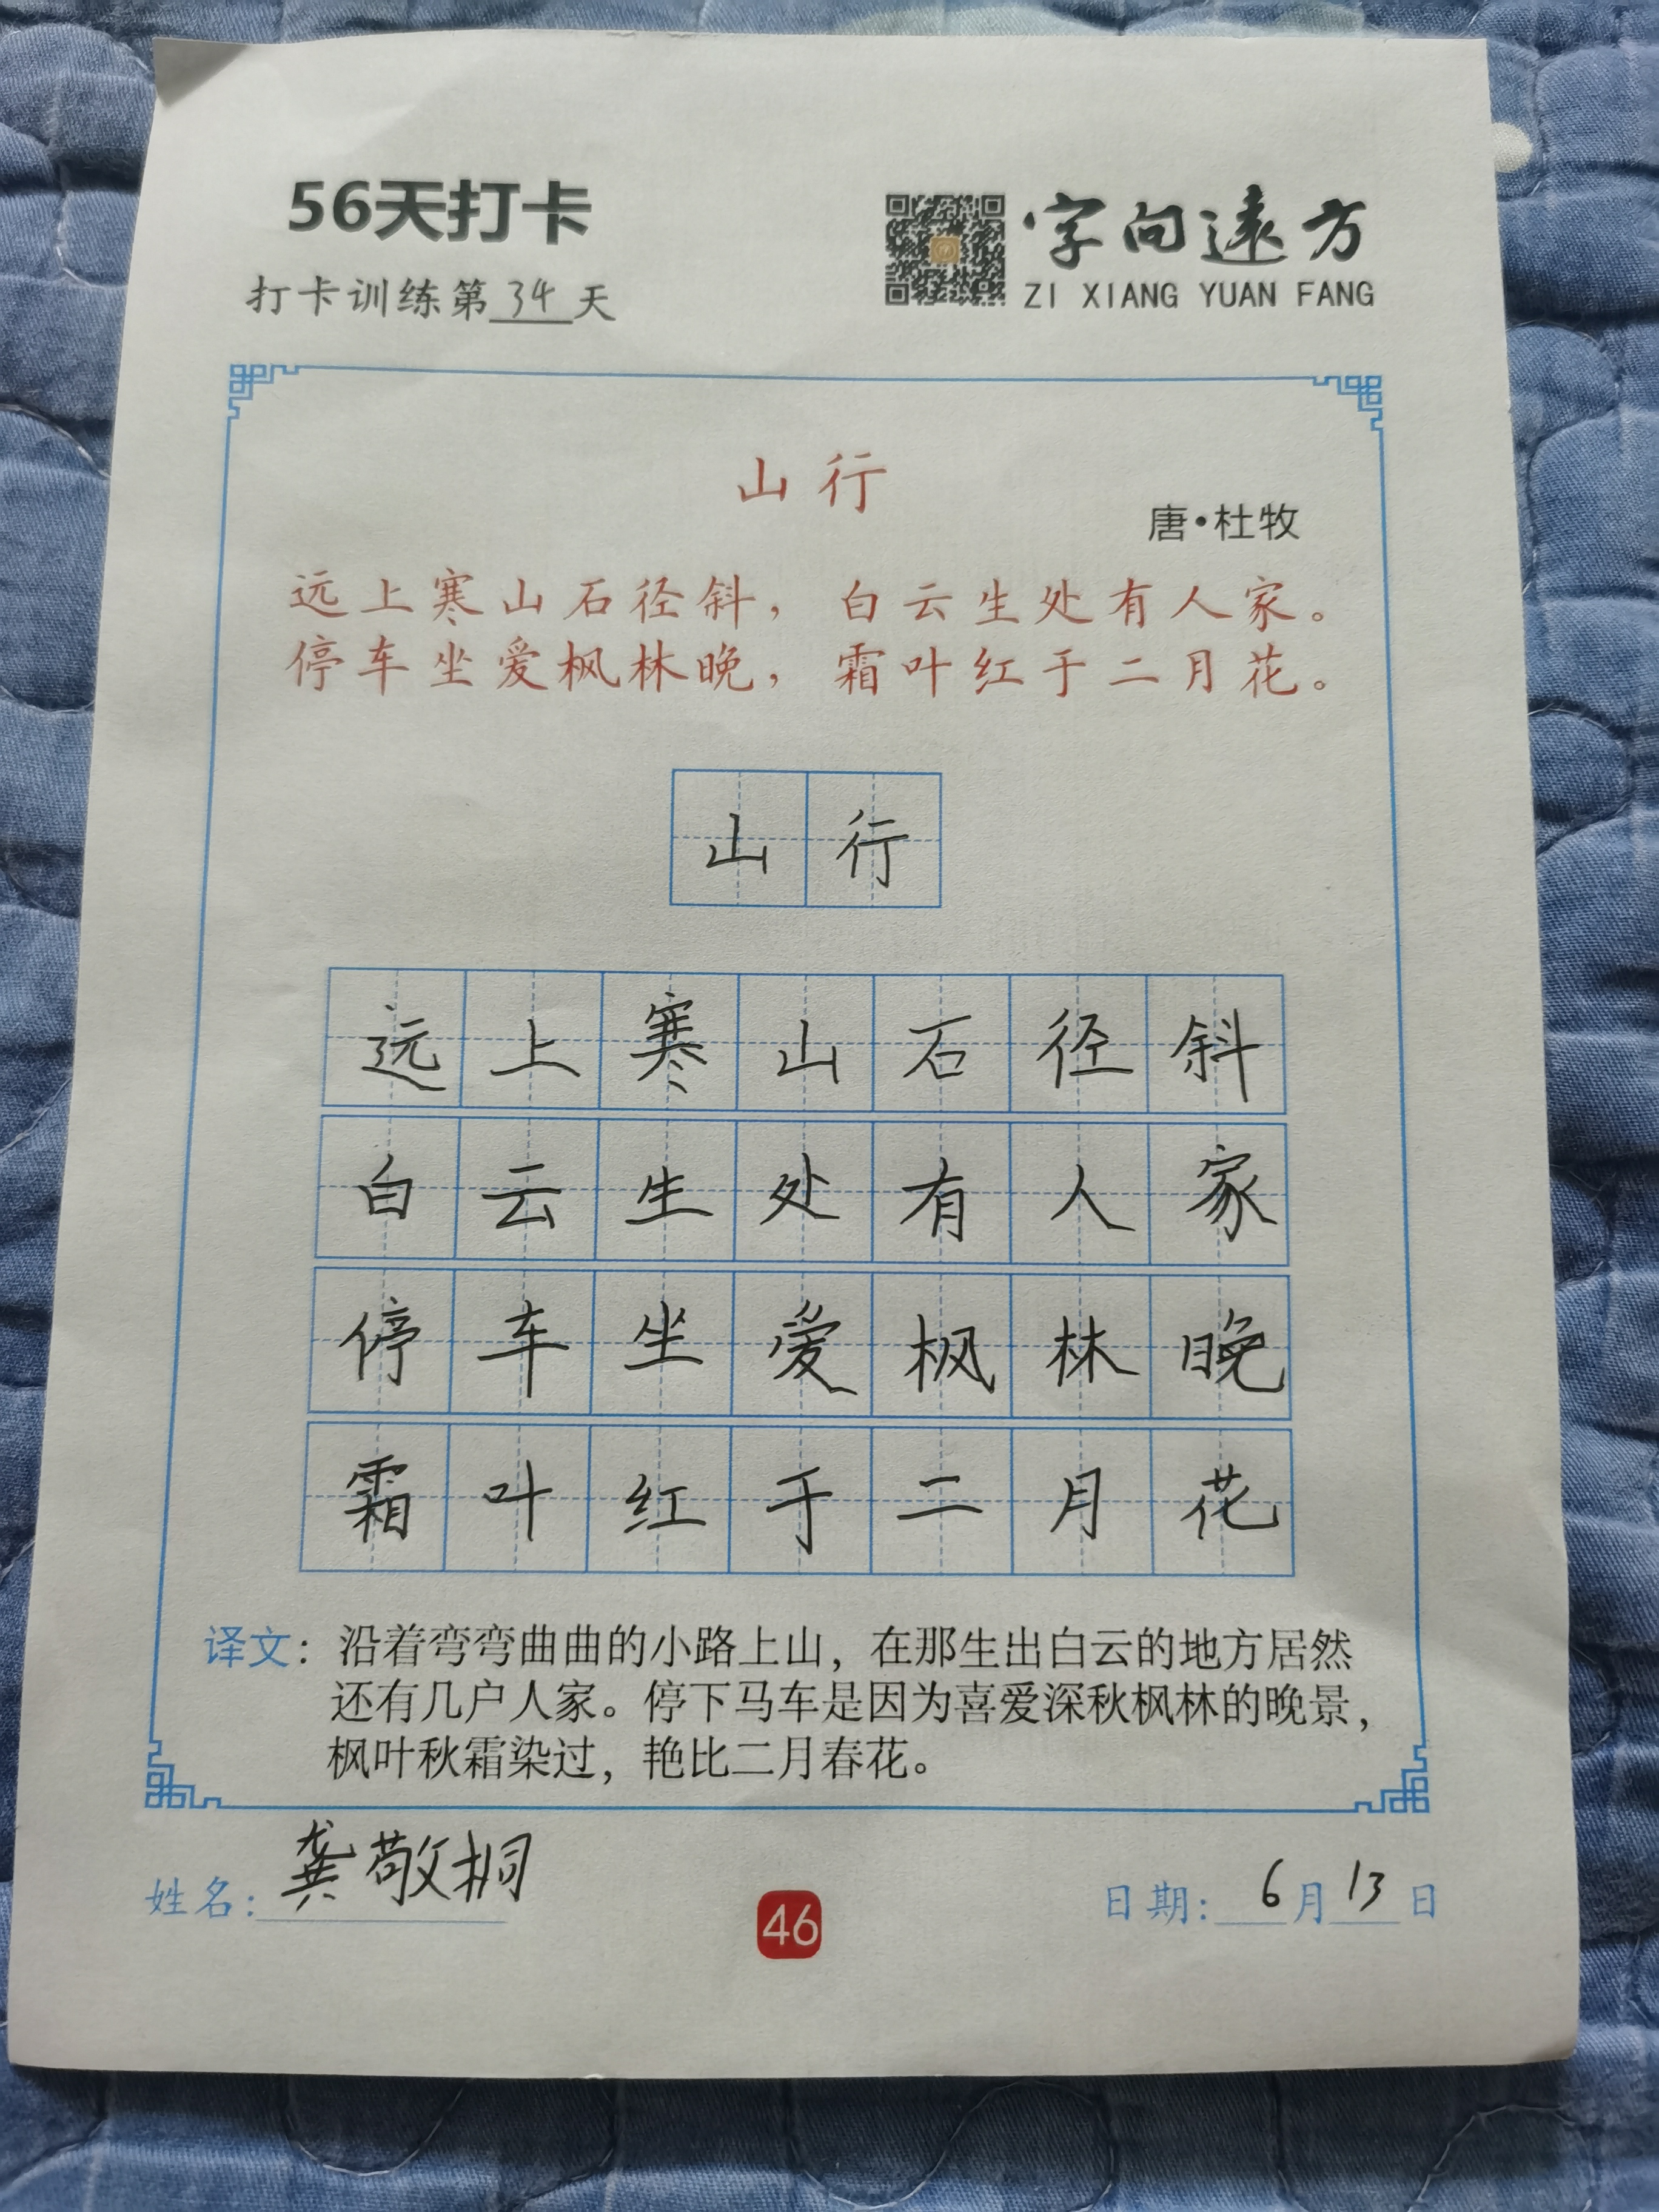 56天打卡
字向遠方
打卡训练第34天
ZI XIANG YUAN FANG
山行
唐·杜牧
远上寒山石径斜，白云生处有人家。
停车坐爱枫林晚，霜叶红于二月花。
山行
远上寒山石径斜
白云生处有人家
停车坐爱枫林晚
霜叶红于二月花
译文：沿着弯弯曲曲的小路上山，在那生出白云的地方居然
还有几户人家。停下马车是因为喜爱深秋枫林的晚景，
枫叶秋霜染过，艳比二月春花。
姓名：龚敬桐
46
日期：6月13日